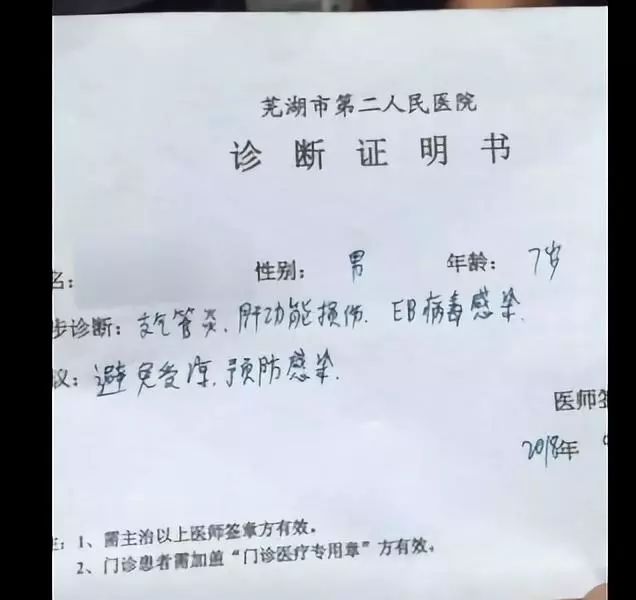 芜湖市第二人民医院
诊断证明书
名： 性别： 男 年龄： 7岁
步诊断：支气管炎.肝功能损伤.EB病毒感染.
议：避免受凉.预防感染.
医师签
2018年
注：1、需主治以上医师签章方有效。
2、门诊患者需加盖“门诊医疗专用章”方有效。